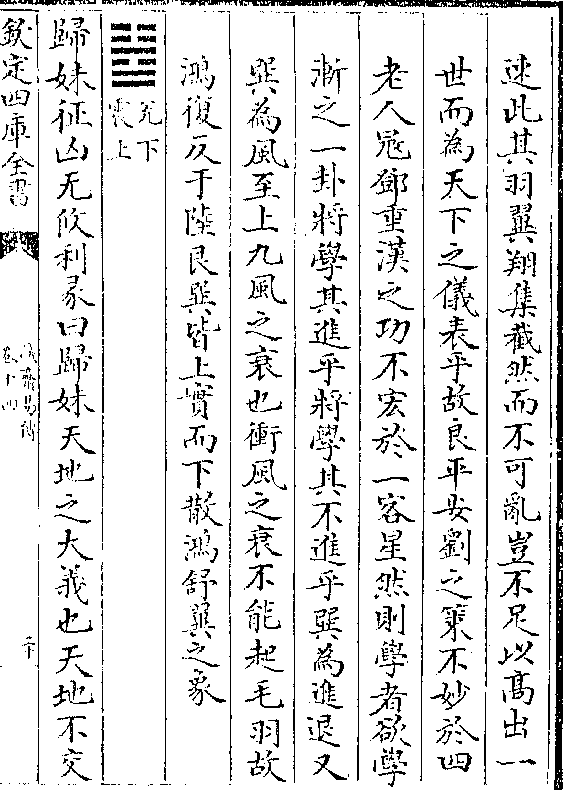 速此其羽翼翔集截然而不可亂豈不足以髙出一
世而為天下之儀表乎故良平安劉之策不妙於四
老人冦鄧重漢之功不宏於一客星然則學者欲學
漸之一卦將學其進乎將學其不進乎巽為進退又
巽為風至上九風之衰也衝風之衰不能起毛羽故
鴻復反于陸艮巽皆上實而下散鴻舒翼之象
兊下
震上
歸妹征凶无攸利彖曰歸妹天地之大義也天地不交
欽定四庫全書
誠齋易傳
卷十四